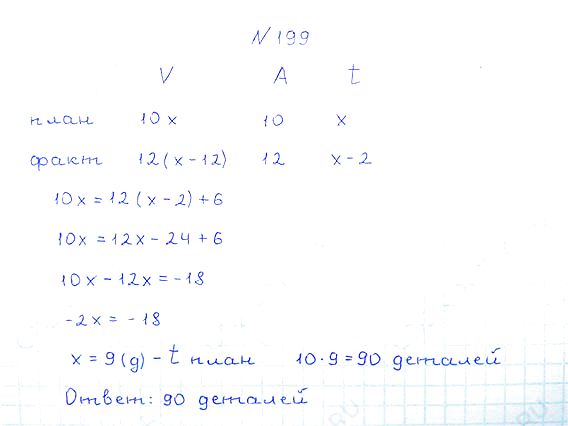 N 199
V A t
план 10x 10 x
факт 12(x-12) 12 x-2
10x = 12(x-2)+6
10x = 12x - 24 + 6
10x - 12x = -18
-2x = -18
x = 9(g) - t план 10·9=90 деталей
Ответ: 90 деталей